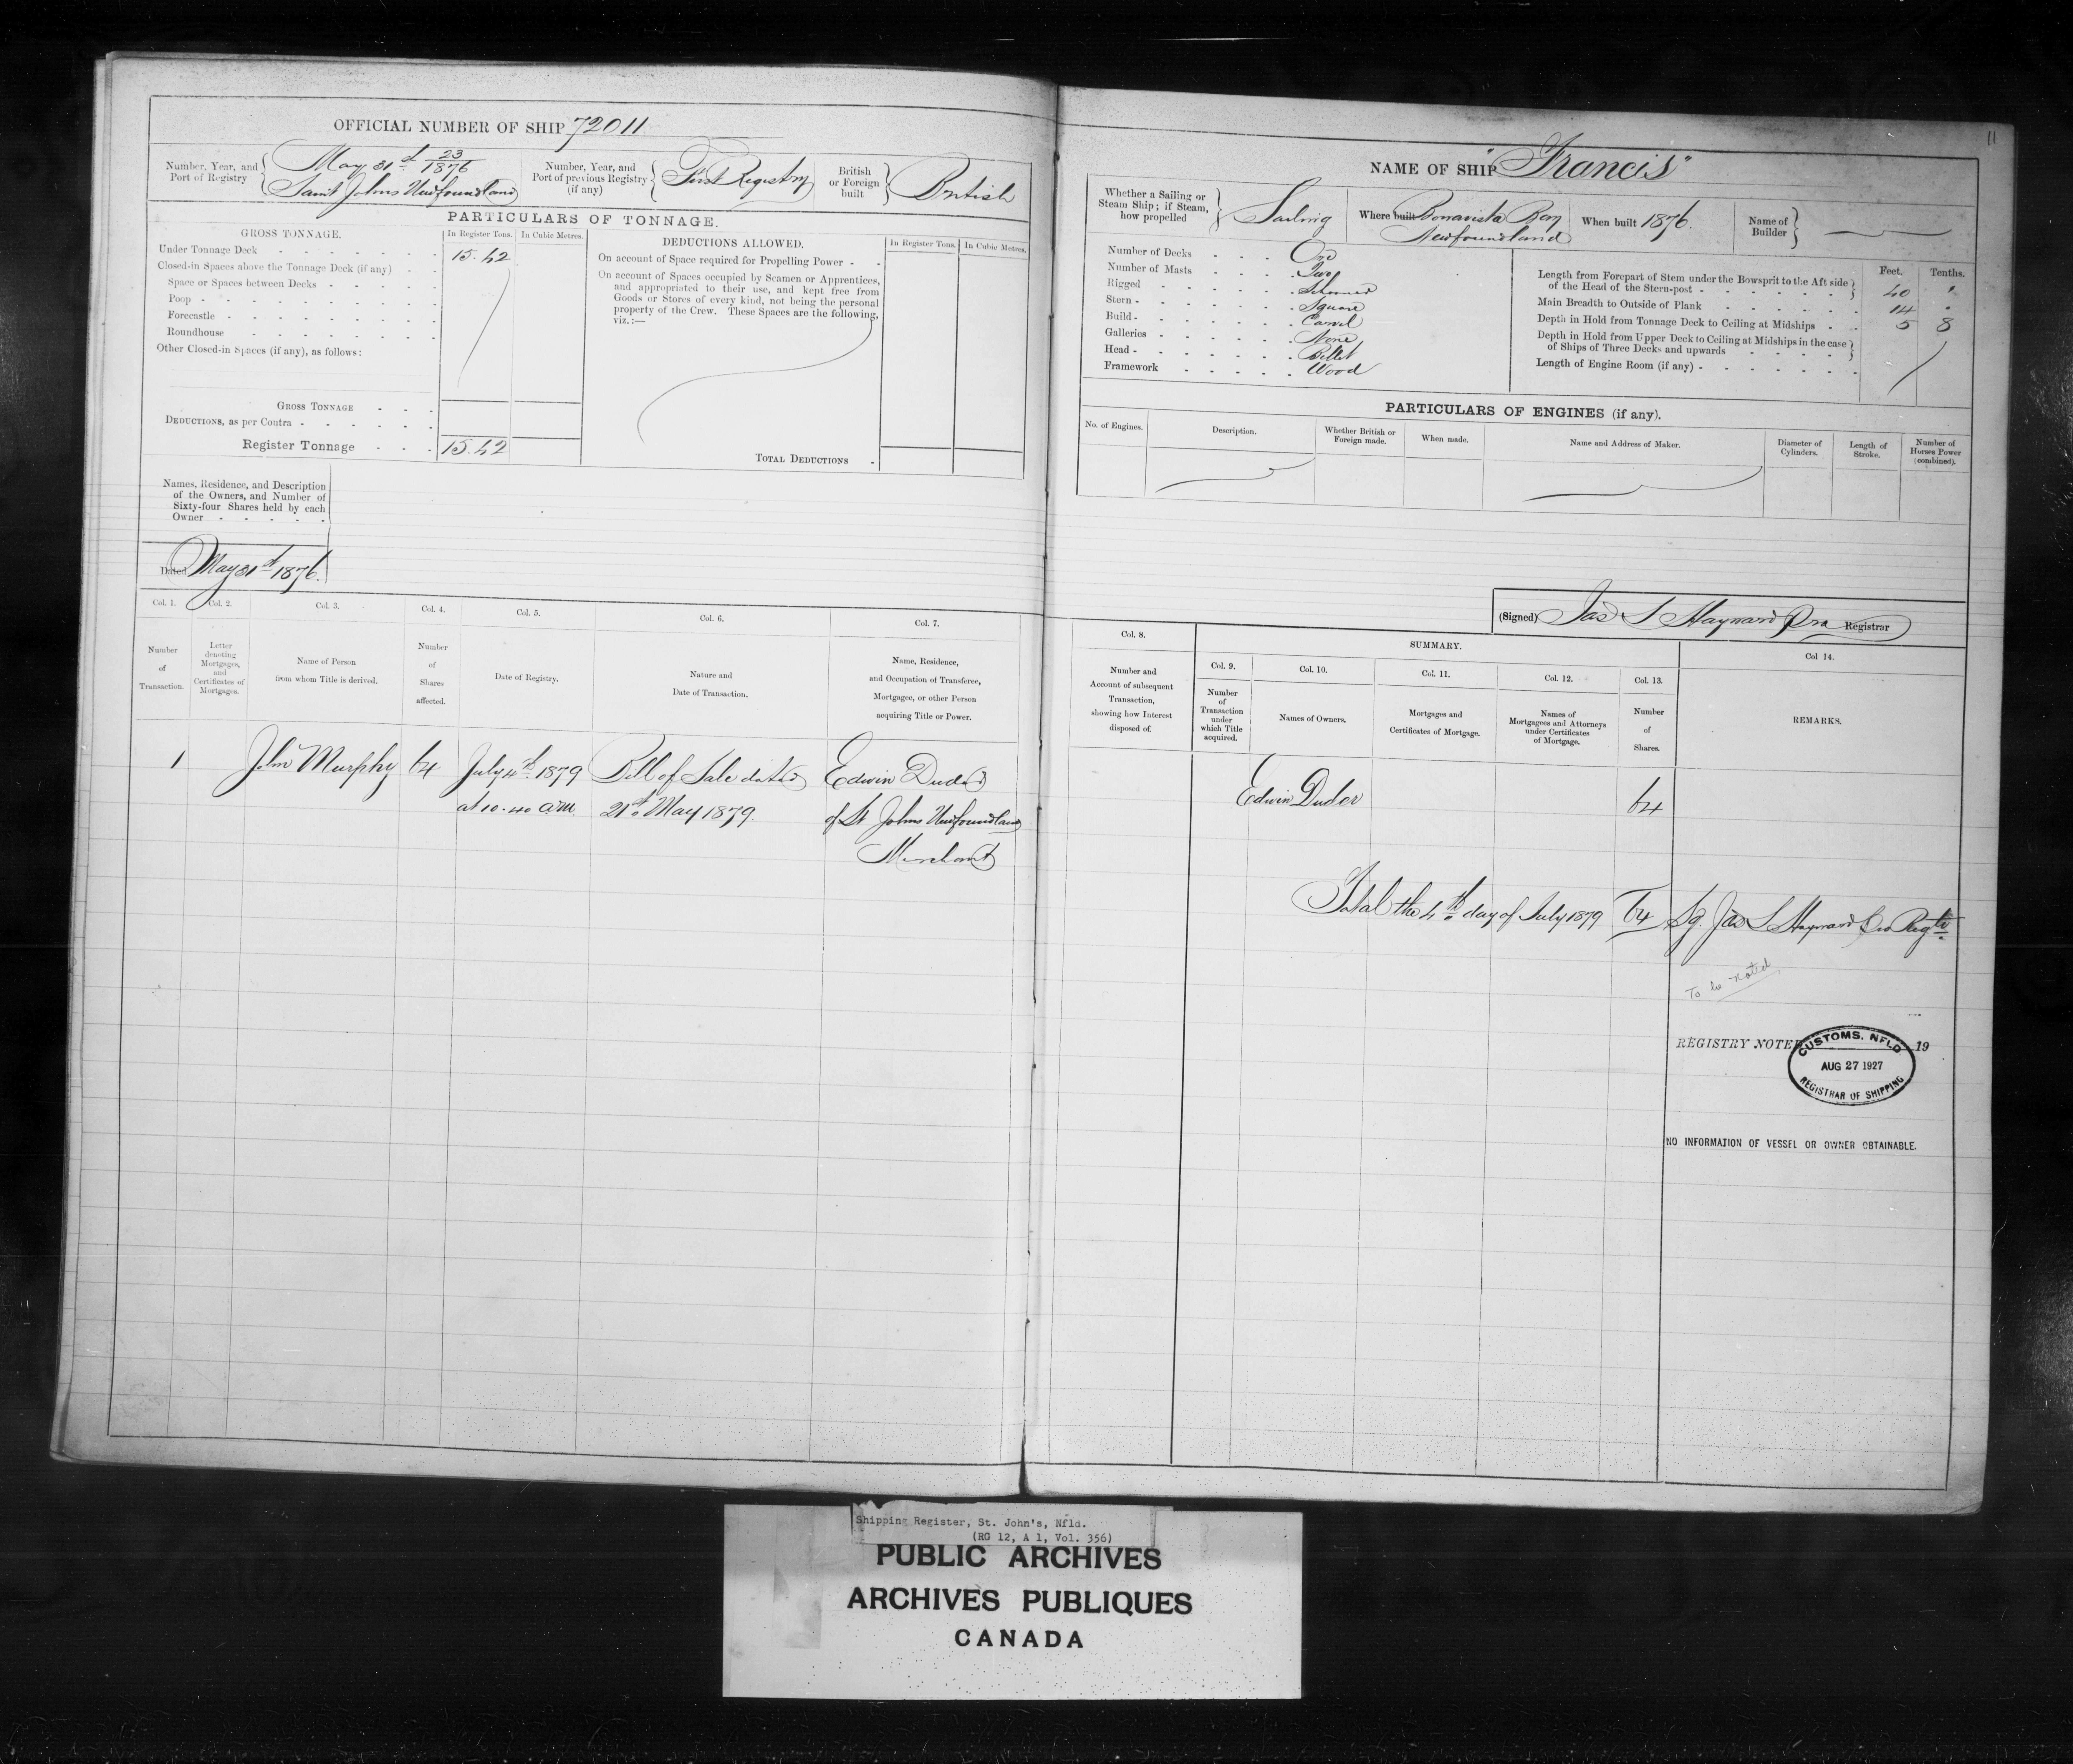 OFFICIAL NUMBER OF SHIP 72011
Number, Year, and Port of Registry
May 31st 23/1876
Saint Johns Newfoundland
Number, Year, and Port of previous Registry (if any)
First Registry
British or Foreign built
British
PARTICULARS OF TONNAGE.
GROSS TONNAGE.
In Register Tons.
In Cubic Metres.
Under Tonnage Deck 15.42
Closed-in Spaces above the Tonnage Deck (if any)
Space or Spaces between Decks
Poop
Forecastle
Roundhouse
Other Closed-in Spaces (if any), as follows:
GROSS TONNAGE
DEDUCTIONS, as per Contra
Register Tonnage 15.42
DEDUCTIONS ALLOWED.
In Register Tons.
In Cubic Metres.
On account of Space required for Propelling Power
On account of Spaces occupied by Seamen or Apprentices,
and appropriated to their use, and kept free from
Goods or Stores of every kind, not being the personal
property of the Crew. These Spaces are the following,
viz.:—
TOTAL DEDUCTIONS
Names, Residence, and Description
of the Owners, and Number of
Sixty-four Shares held by each
Owner
Dated May 31st 1876.
Col. 1.
Col. 2.
Col. 3.
Col. 4.
Col. 5.
Col. 6.
Col. 7.
Number of Transaction.
Letter denoting Mortgages, and Certificates of Mortgages.
Name of Person from whom Title is derived.
Number of Shares affected.
Date of Registry.
Nature and Date of Transaction.
Name, Residence, and Occupation of Transferee, Mortgagee, or other Person acquiring Title or Power.
1 John Murphy 64 July 4th 1879 Bill of Sale dated Edwin Duder
at 10.40 a.m. 21st May 1879. of St Johns Newfoundland
Merchant
11
NAME OF SHIP "Francis"
Whether a Sailing or Steam Ship; if Steam, how propelled
Sailing
Where built Bonavista Bay
Newfoundland
When built 1876.
Name of Builder
Number of Decks One
Number of Masts Two
Rigged Schooner
Stern Square
Build Carvel
Galleries None
Head Billet
Framework Wood
Feet. Tenths.
Length from Forepart of Stem under the Bowsprit to the Aft side
of the Head of the Stern-post 40 "
Main Breadth to Outside of Plank 14 "
Depth in Hold from Tonnage Deck to Ceiling at Midships 5 8
Depth in Hold from Upper Deck to Ceiling at Midships in the case
of Ships of Three Decks and upwards
Length of Engine Room (if any)
PARTICULARS OF ENGINES (if any).
No. of Engines.
Description.
Whether British or Foreign made.
When made.
Name and Address of Maker.
Diameter of Cylinders.
Length of Stroke.
Number of Horses Power (combined).
(Signed) Jas S Hayward Pro Registrar
Col. 8.
SUMMARY.
Col. 9.
Col. 10.
Col. 11.
Col. 12.
Col. 13.
Col 14.
Number and Account of subsequent Transaction, showing how Interest disposed of.
Number of Transaction under which Title acquired.
Names of Owners.
Mortgages and Certificates of Mortgage.
Names of Mortgagees and Attorneys under Certificates of Mortgage.
Number of Shares.
REMARKS.
Edwin Duder 64
Total the 4th day of July 1879 64 Sg. Jas S Hayward Pro Regtr
To be noted
REGISTRY NOTED 19
CUSTOMS. NFLD
AUG 27 1927
REGISTRAR OF SHIPPING
NO INFORMATION OF VESSEL OR OWNER OBTAINABLE.
Shipping Register, St. John's, Nfld.
(RG 12, A 1, Vol. 356)
PUBLIC ARCHIVES
ARCHIVES PUBLIQUES
CANADA